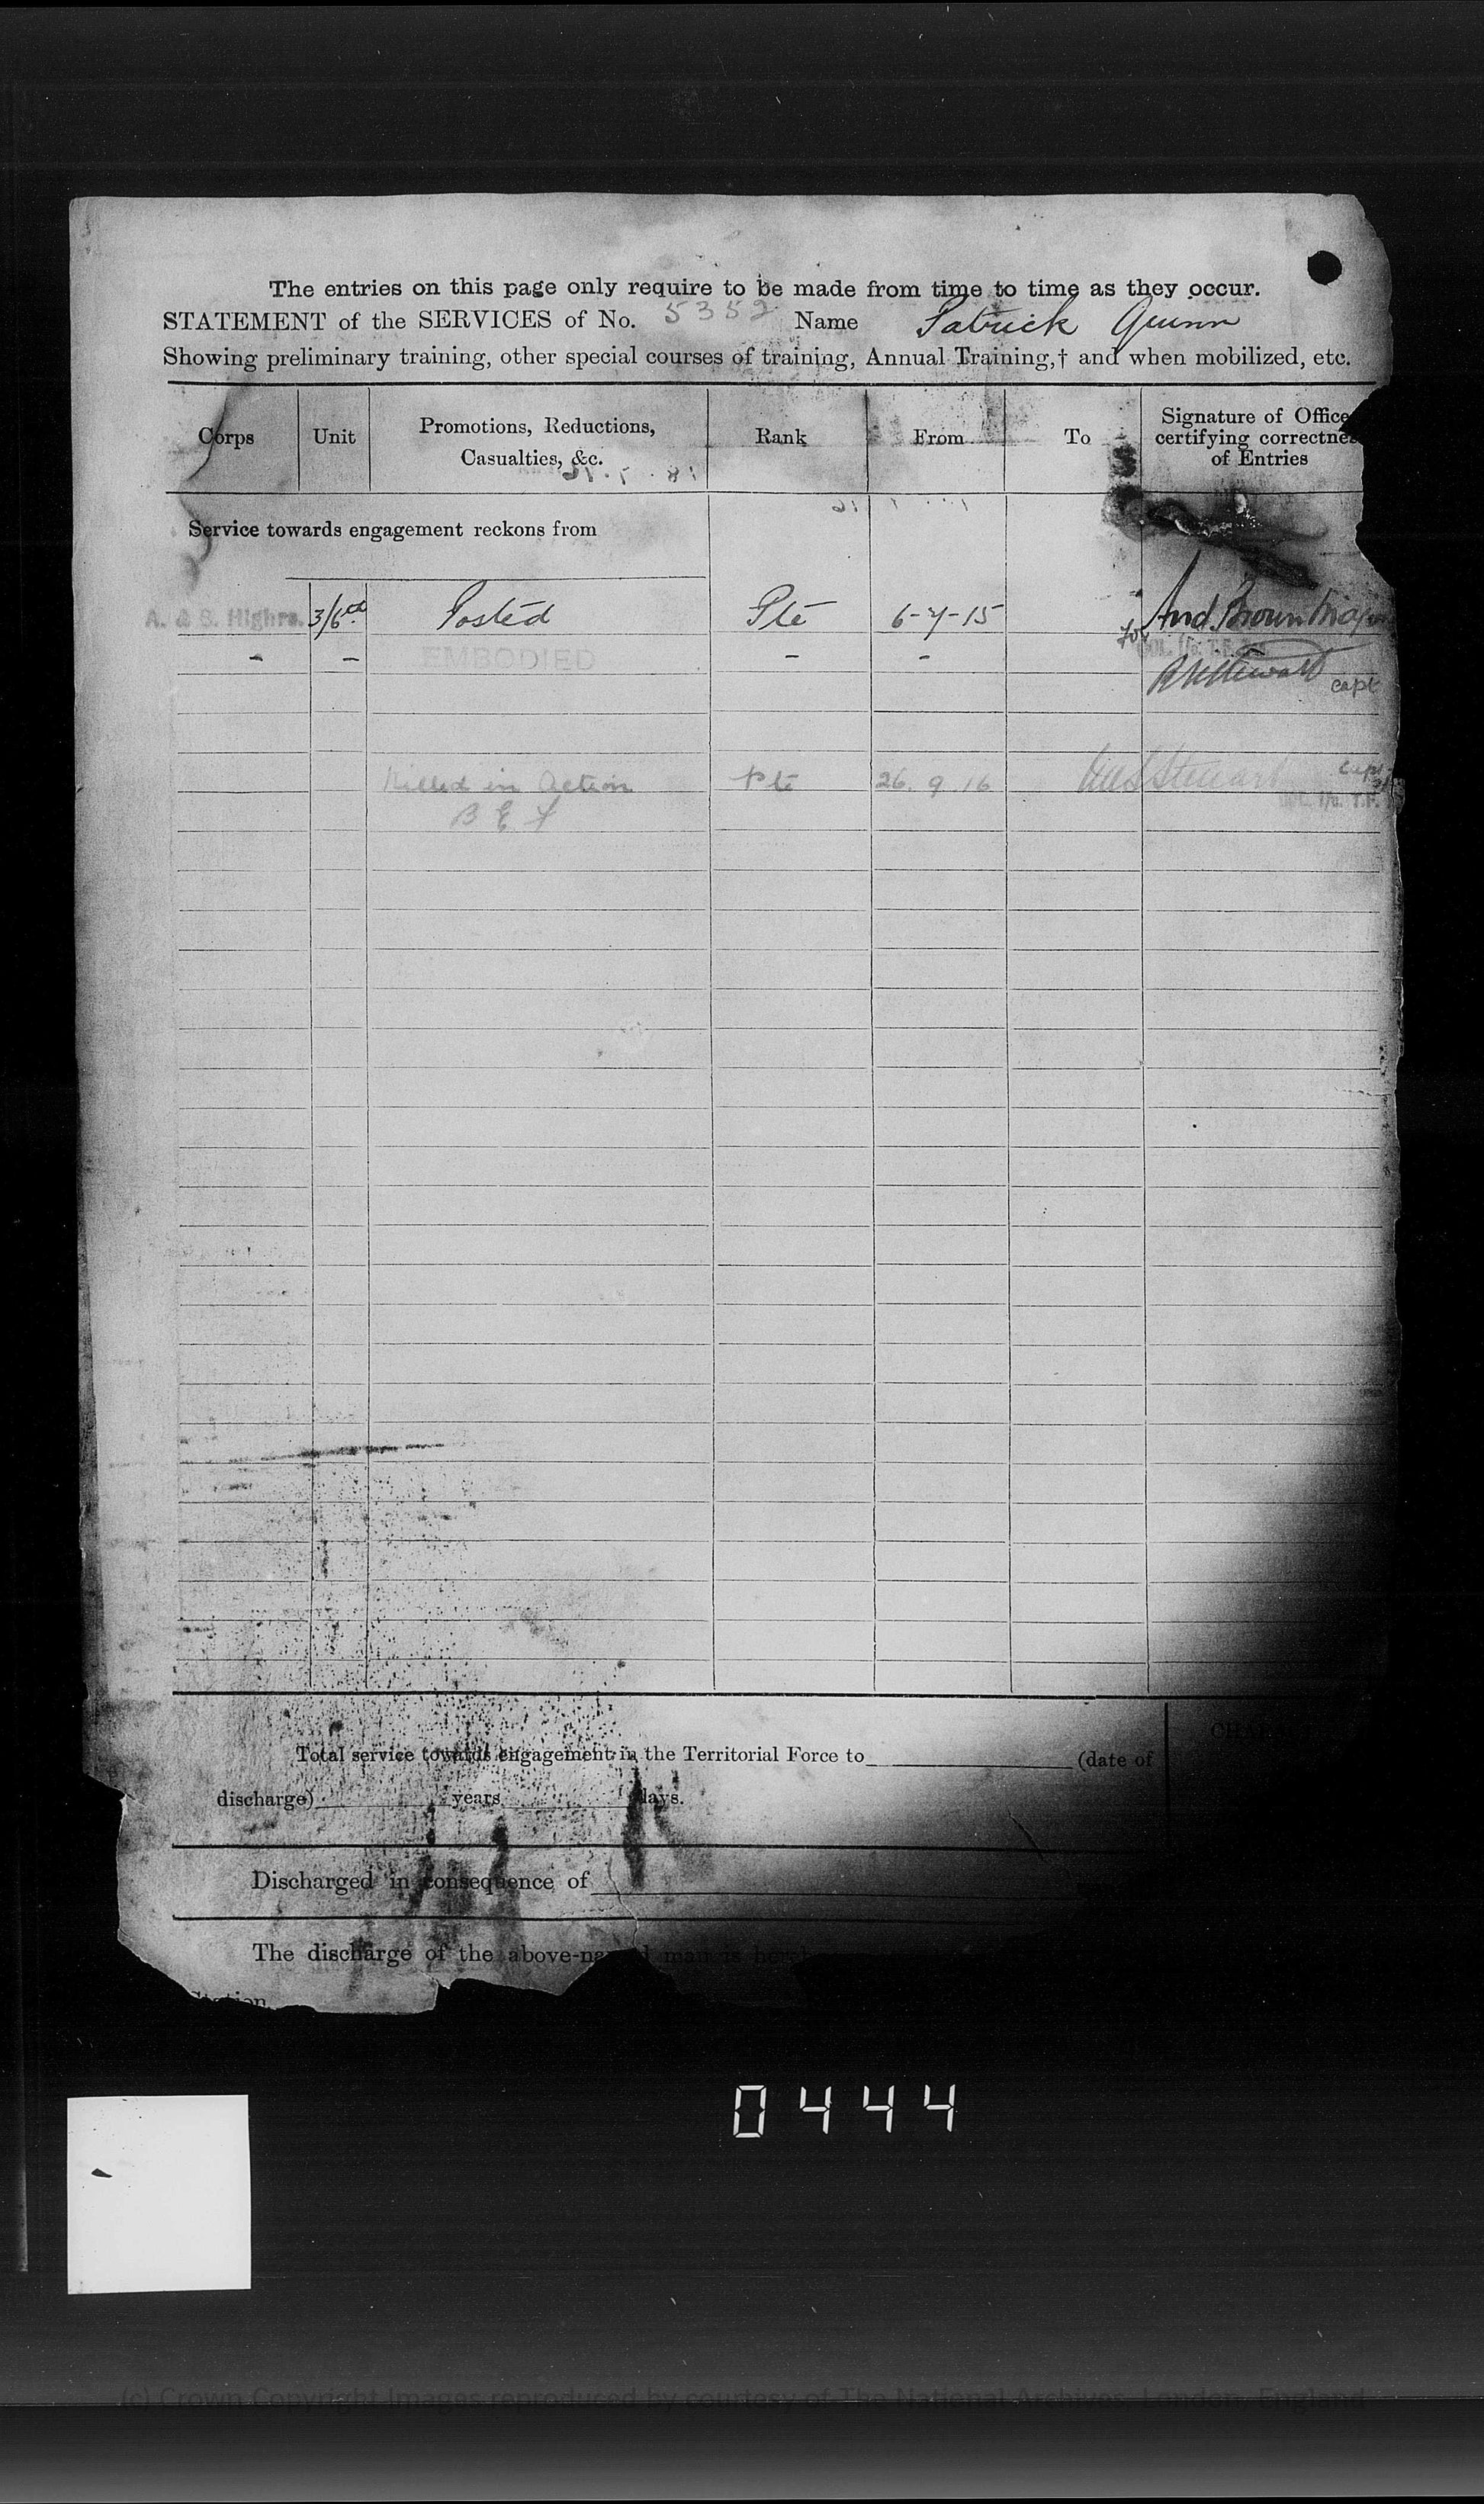 The entries on this page only require to be made from time to time as they occur.
STATEMENT of the SERVICES of No. 5352 Name Patrick Quinn
Showing preliminary training, other special courses of training, Annual Training,† and when mobilized, etc.
Corps Unit Promotions, Reductions, Casualties, &c. Rank From To Signature of Office certifying correctne of Entries
Service towards engagement reckons from
A. & S. Highrs. 3/6th Posted Pte 6-7-15 And. Brown Major
for COL. I/c. T.F.
- - EMBODIED - - Stewart capt
Killed in Action Pte 26.9.16 Stewart capt
B E F I/c. T.F.
Total service towards engagement in the Territorial Force to (date of
discharge) years days.
Discharged in consequence of
The discharge of the above-named man is he
Station
0444
(c) Crown Copyright Images reproduced by courtesy of The National Archives, London, England